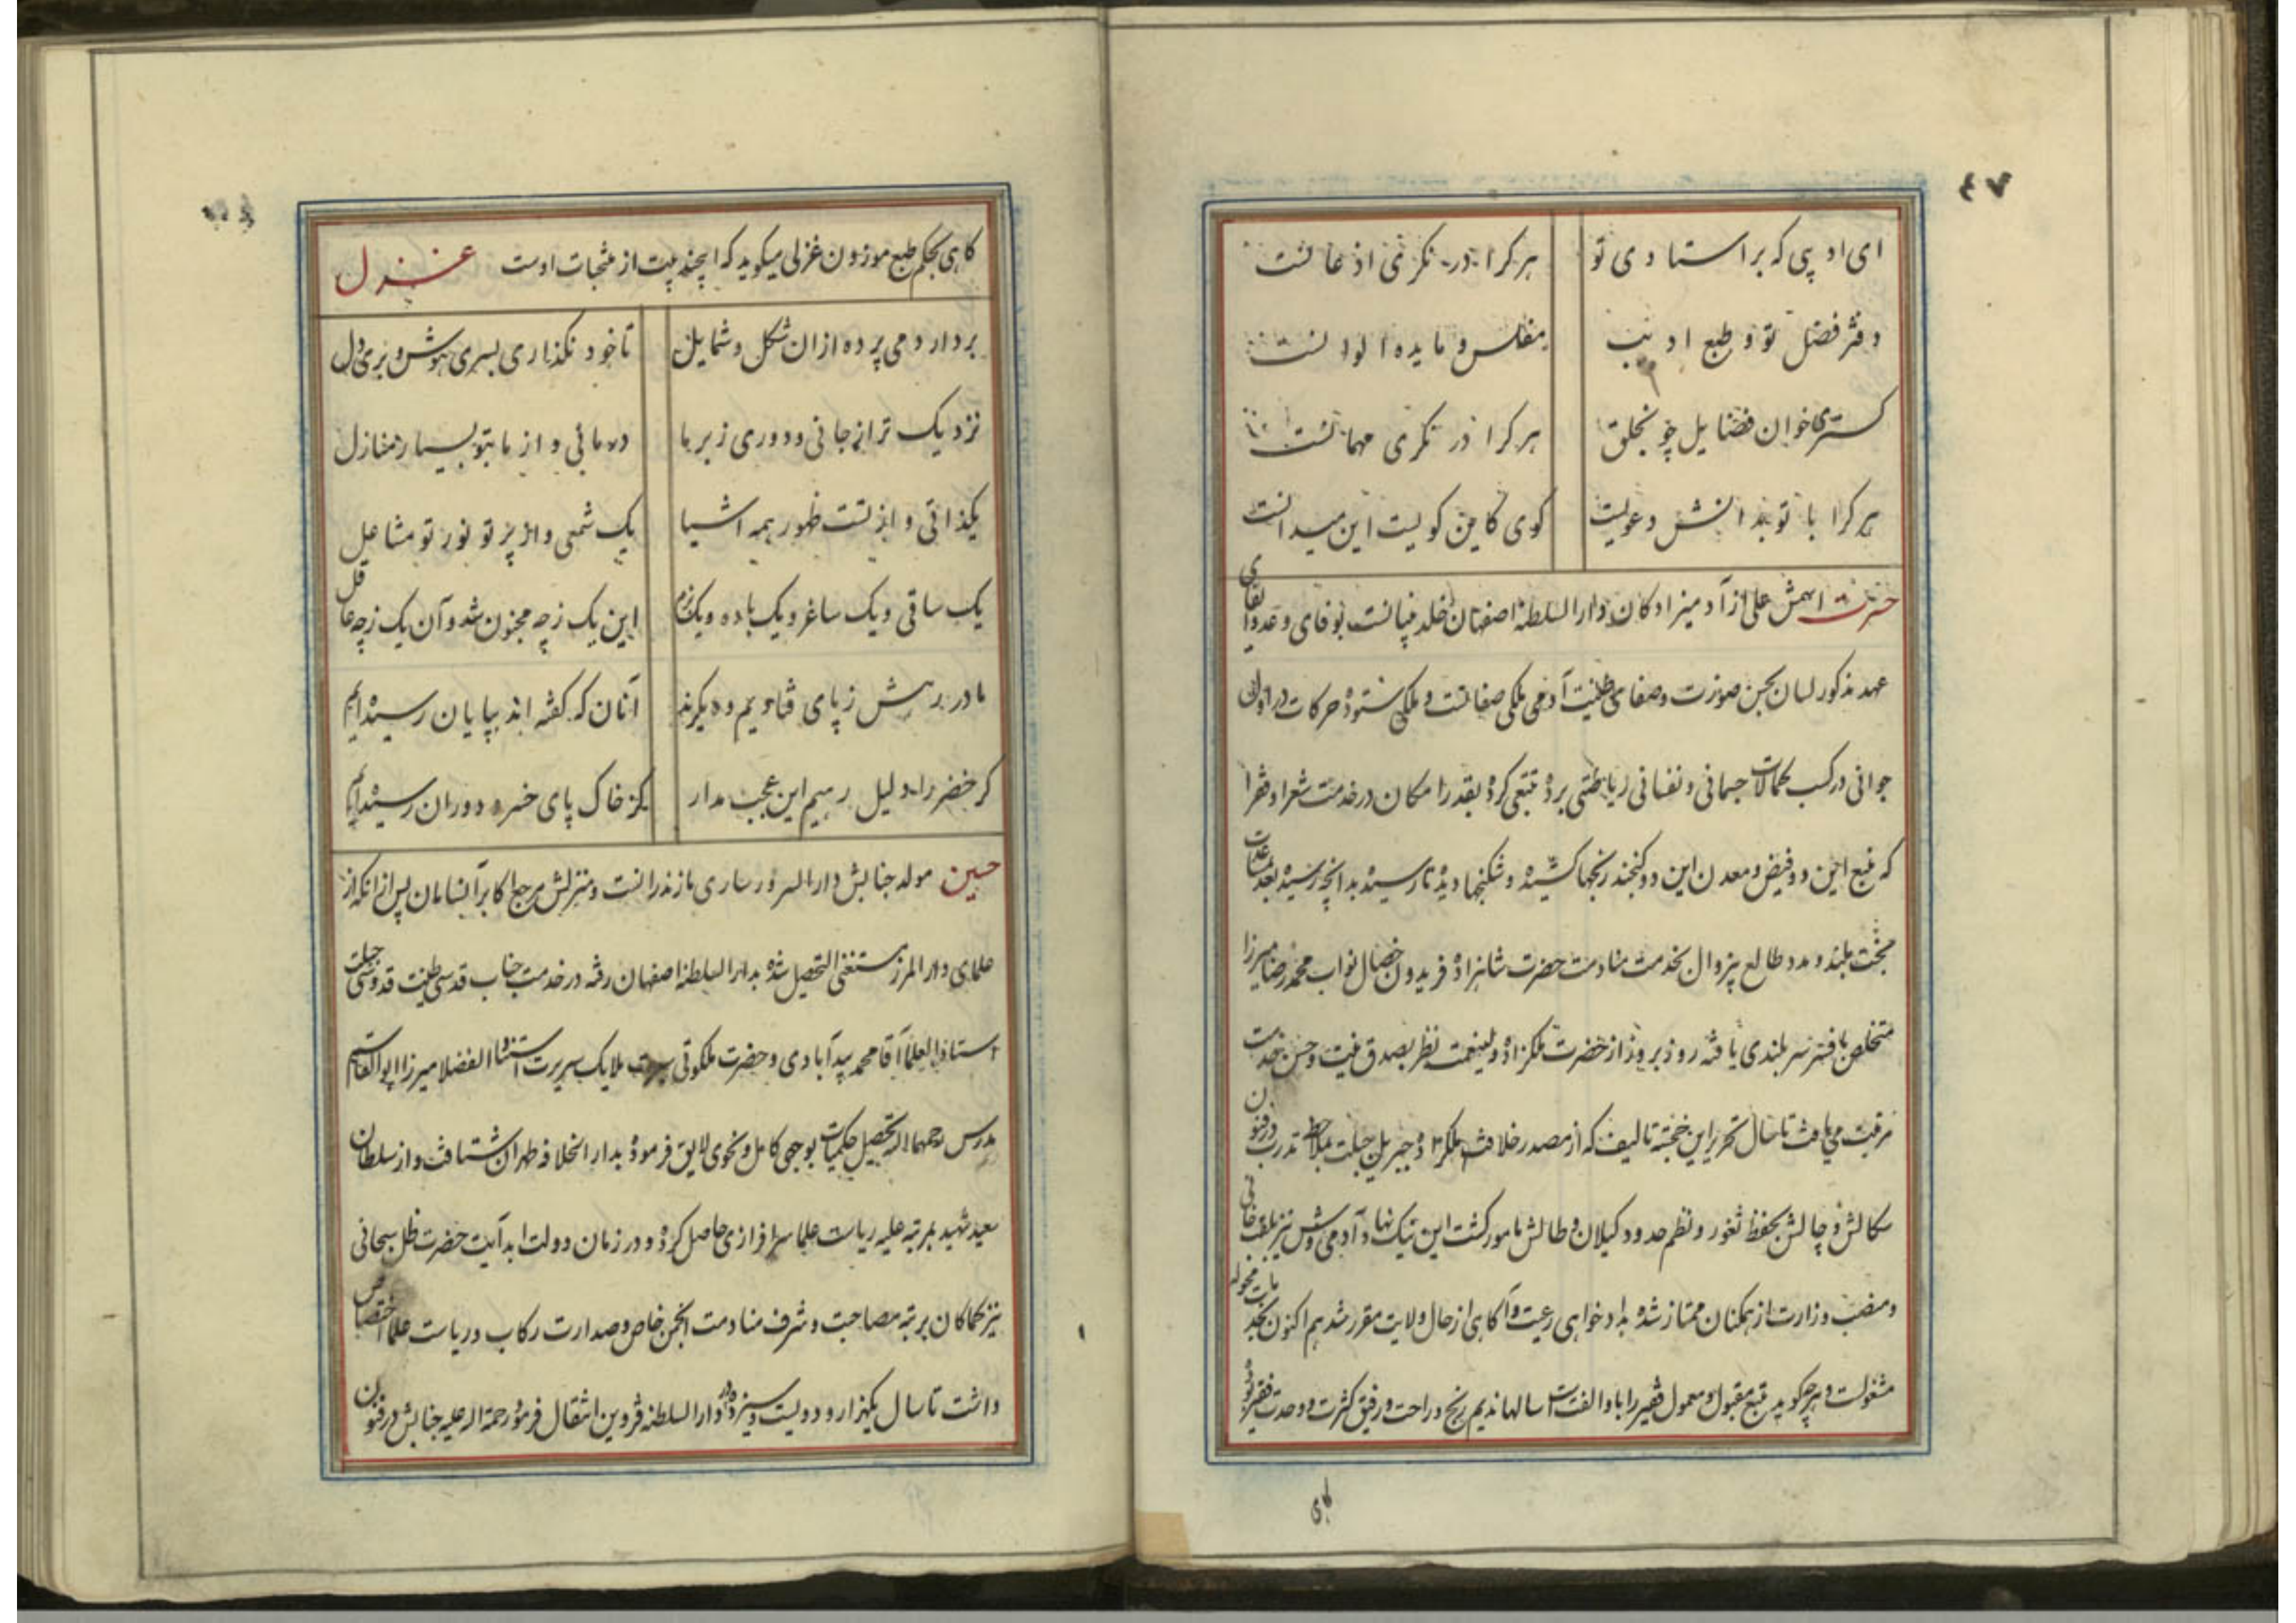 ٤٧
ای ادیبی که بر استادی تو هر کرا در نکری اذعانست
دفتر فضل تو و طبع ادیب مفلس و مایده الوانست
کستری خوان فضایل چو بخلق هر کرا در نکری مهمانست
هر کرا با تو بدانش دعویست کوی کاین کویست این میدانست
حسرت اسمش علی از آدمیزادکان دارالسلطنه اصفهان خلد بنیانست بوفای وعدوایفای
عهد مذکور لسان بحسن صورت وصفای طینت آدمی ملکی صفاتست و ملکی ستوده حرکات در اوان
جوانی در کسب کمالات جسمانی و نفسانی ریاضتی برده تتبعی کرده بقدر امکان در خدمت شعرا و فقرا
که منبع این دو فیض و معدن این دو کنجند رنجها کشیده و شکنجها دیده تا رسیده بدانچه رسیده بعد
ببخت بلند و مدد طالع بزوال بخدمت منادمت حضرت شاهزاده فریدون خصال نواب محمد رضا میرزا
متخلص بافسر سربلندی یافته روز بروز از حضرت ملکزاده ولینعمت نظر بصدق نیت و حسن خدمت
مرقبت می یافت تا حال تحریر این خجسته تالیف که از مصدر خلافت ملکزاده جبریل جبلت بملاحظه تدرب در فنون
سکالش و چالش بحفظ ثغور و نظم حدود کیلان و طالش مامور کشت این نیک نهاد آدمی وش نیز بلقب خانی
و منصب وزارت از همکنان ممتاز شده بدادخواهی رعیت و آکاهی از حال ولایت مقرر شد هم اکنون بخدمات محوله
مشغولست و هر چه کوید بتبع مقبول و معمول فقیر را باو الفت سالها ندیم رنج و راحت و رفیق کثرت و وحدت فقیر بود
کاهی
کاهی بحکم طبع موزون غزلی میکوید که این چند بیت از منتخبات اوست غزل
بردار دمی پرده ازان شکل و شمایل تا خود نکذاری بسری هوش و بری دل
نزدیک تر از جانی و دوری ز بر ما در مائی و از ما بتو بسیار منازل
یکذاتی و از تست ظهور همه اشیا یک شمعی و از پرتو نور تو مشاعل
یک ساقی و یک ساغر و یک باده و یک بزم این یک ز چه مجنون شد و آن یک ز چه عاقل
ما در رهش ز پای فتادیم و دیکرند آنان که کفته اند بپایان رسیده ایم
کر خضر را دلیل رهیم این عجب مدار کز خاک پای خسرو دوران رسیده ایم
حسین مولد جنابش دارالسرور ساری مازندرانست و منزلش مرجع اکابر آنسامان پس از آنکه از
علمای دارالمرز مستغنی التحصیل شده بدارالسلطنه اصفهان رفته در خدمت جناب قدسی طینت قدوسی جبلت
استاذالعلما آقا محمد بیدآبادی و حضرت ملکوتی ملایک سریرت استاد الفضلا میرزا ابوالقاسم
مدرس رحمهما الله تحصیل حکمیات بوجهی کامل و نحوی لایق فرموده بدارالخلافه طهران شتافت و از سلطان
سعید شهید بمرتبه علیه ریاست علما سرافرازی حاصل کرده و در زمان دولت ابد آیت حضرت ظل سبحانی
نیز کماکان برتبه مصاحبت و شرف منادمت انجمن خاص و صدارت رکاب و ریاست علما اختصاص
داشت تا سال یکهزار و دویست و سیزده در دارالسلطنه قزوین انتقال فرموده رحمة الله علیه جنابش در فنون